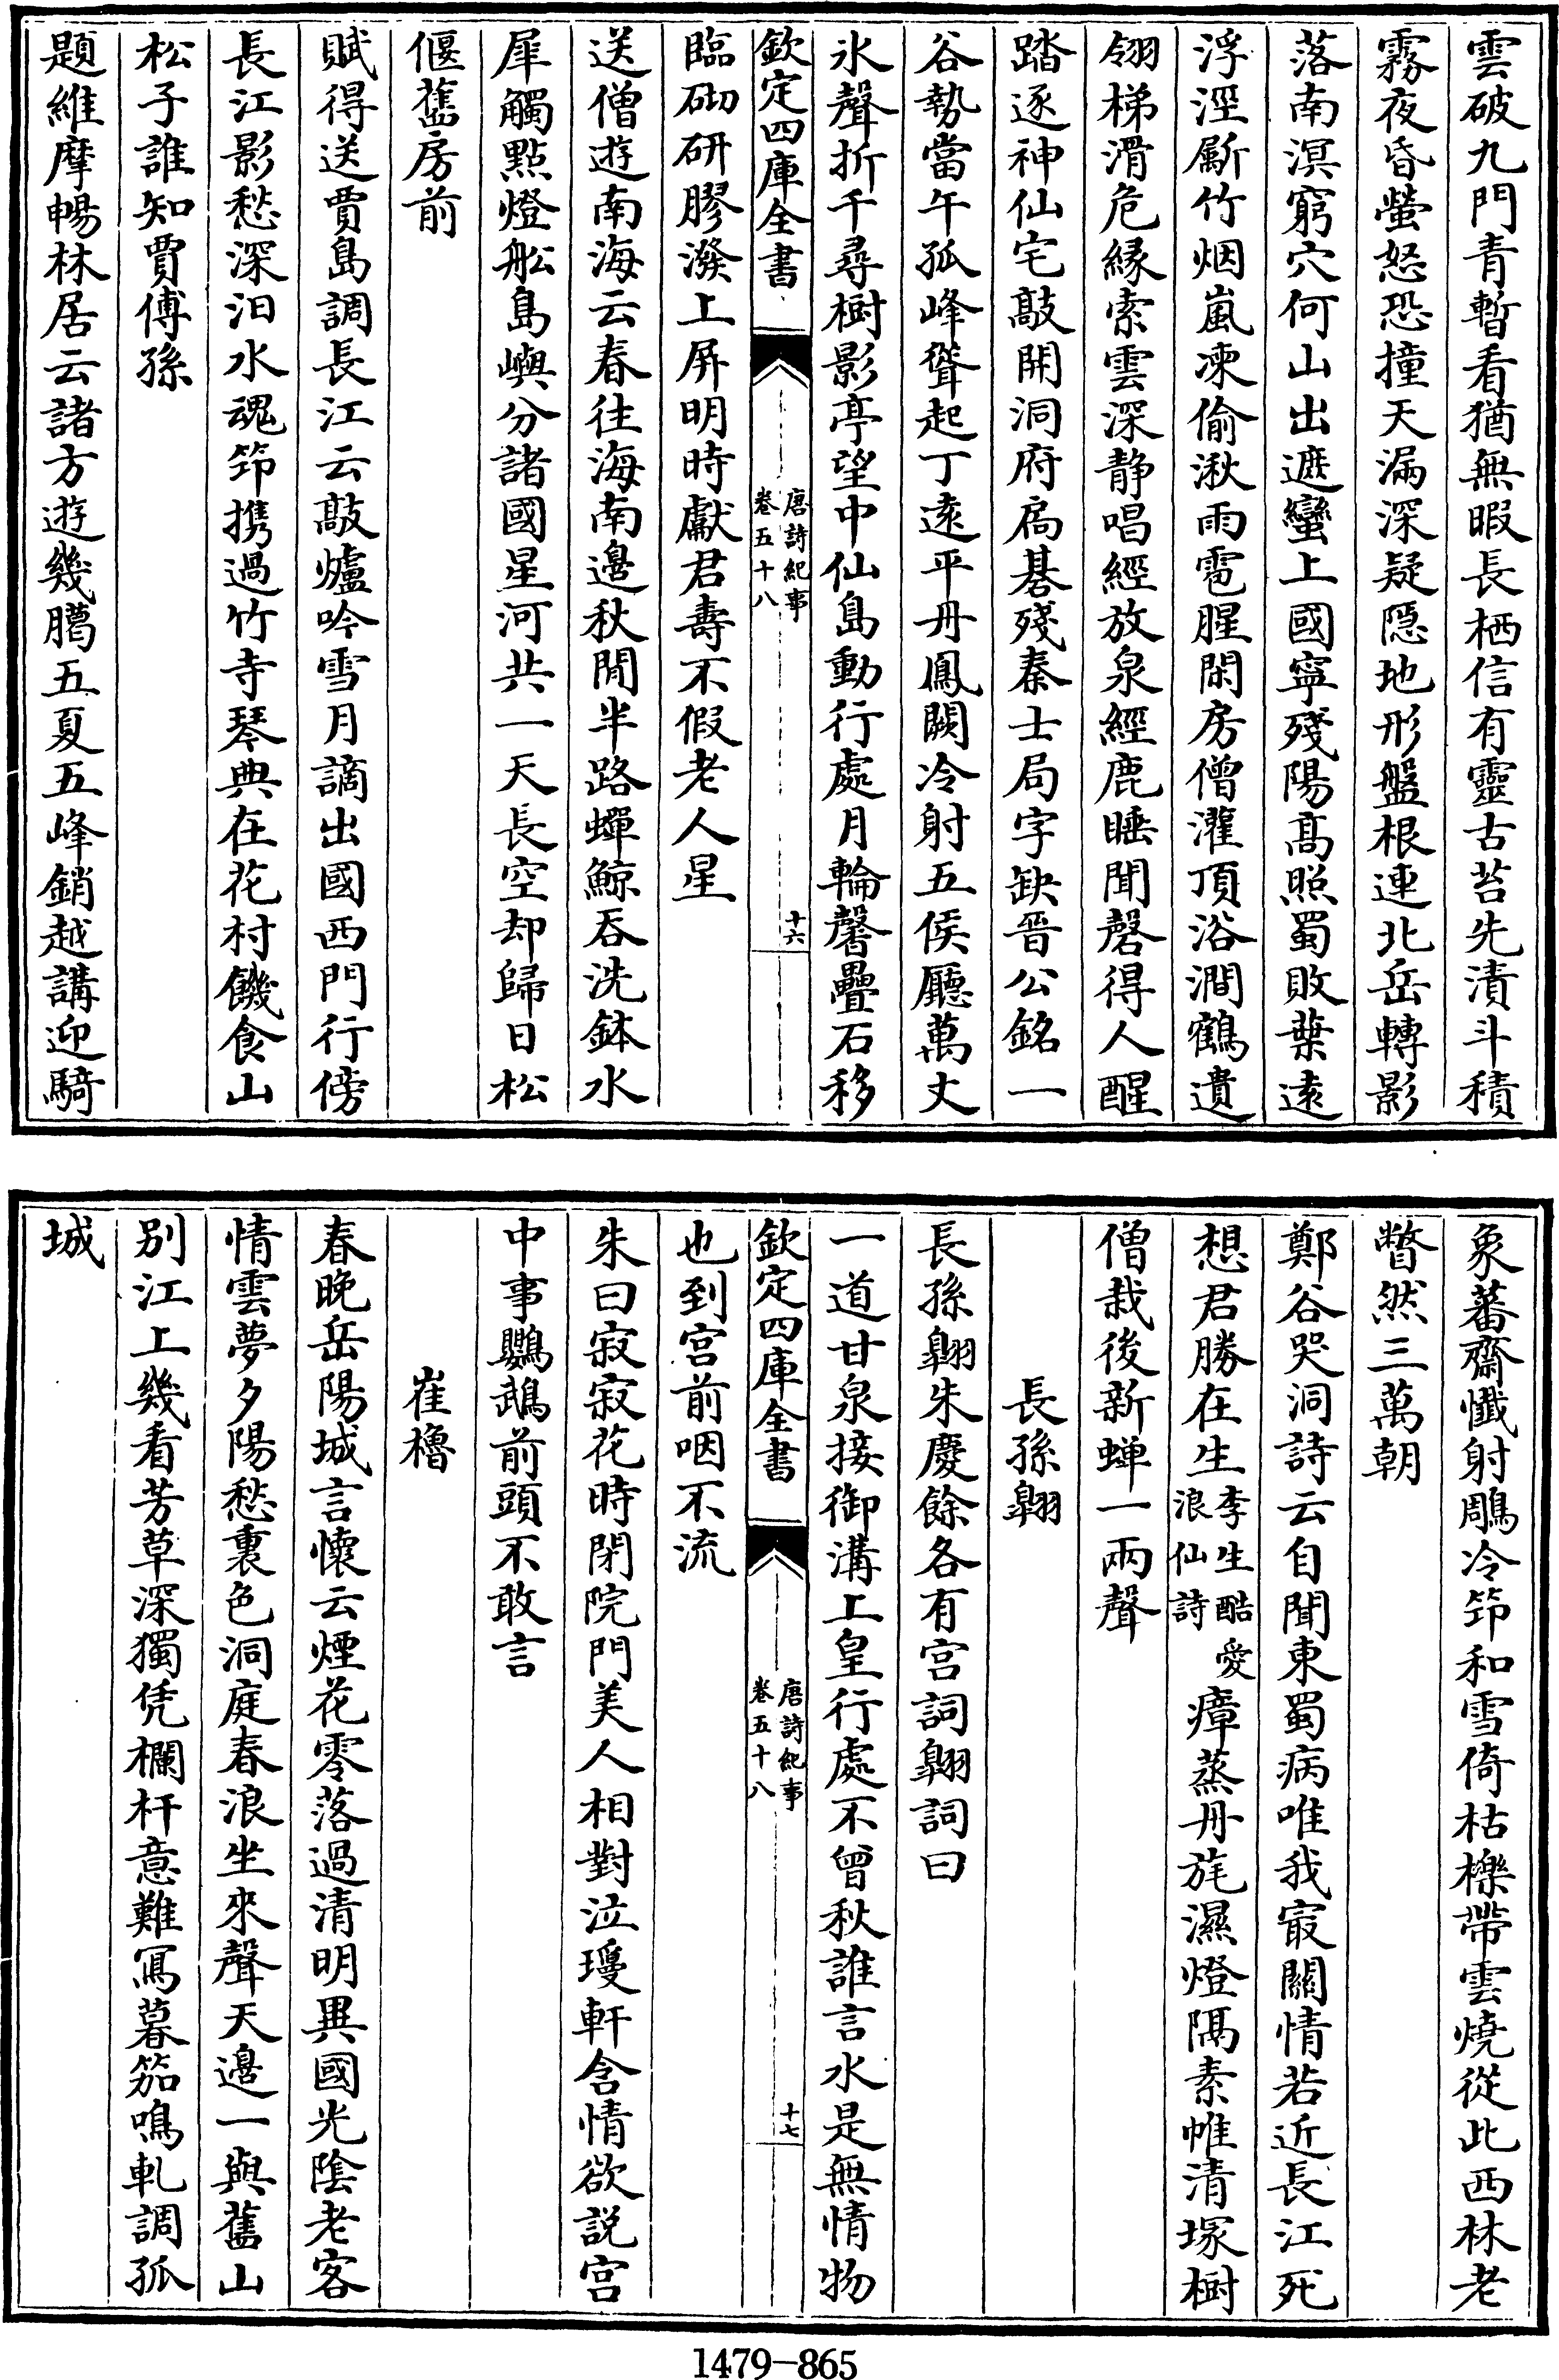 雲破九門青暫看猶無暇長栖信有靈古苔先漬斗積
霧夜昏螢怒恐撞天漏深疑隱地形盤根連北岳轉影
落南溟窮穴何山出遮蠻上國寧殘陽髙照蜀敗葉逺
浮涇斸竹烟嵐凍偷湫雨雹腥閑房僧灌頂浴澗鶴遺
翎梯滑危緣索雲深静唱經放泉經鹿睡聞磬得人醒
踏逐神仙宅敲開洞府扃碁殘秦士局字缺晉公銘一
谷勢當午孤峰聳起丁逺平丹鳳闕冷射五侯廳萬丈
氷聲折千尋樹影亭望中仙島動行處月輪馨疊石移
欽定四庫全書
唐詩紀事
卷五十八
十六
臨砌研膠潑上屏明時獻君壽不假老人星
送僧遊南海云春往海南邉秋聞半路蟬鯨吞洗鉢水
犀觸點燈船島嶼分諸國星河共一天長空却歸日松
偃舊房前
賦得送賈島調長江云敲爐吟雪月謫出國西門行傍
長江影愁深汨水魂筇携過竹寺琴典在花村饑食山
松子誰知賈傅孫
題維摩暢林居云諸方遊幾臈五夏五峰銷越講迎騎
象蕃齋懺射鵰冷筇和雪倚枯櫟帶雲燒從此西林老
瞥然三萬朝
鄭谷哭洞詩云自聞東蜀病唯我㝡關情若近長江死
想君勝在生李生酷愛浪仙詩瘴蒸丹旐濕燈隔素帷清塚樹
僧栽後新蟬一兩聲
長孫翺
長孫翺朱慶餘各有宫詞翺詞曰
一道甘泉接御溝上皇行處不曾秋誰言水是無情物
欽定四庫全書
唐詩紀事
卷五十八
十七
也到宫前咽不流
朱曰寂寂花時閉院門美人相對泣瓊軒含情欲説宫
中事鸚鵡前頭不敢言
崔櫓
春晚岳陽城言懷云煙花零落過清明異國光陰老客
情雲夢夕陽愁裏色洞庭春浪坐來聲天邉一與舊山
别江上幾看芳草深獨凭欄杆意難寫暮笳嗚軋調孤
城
1479-865